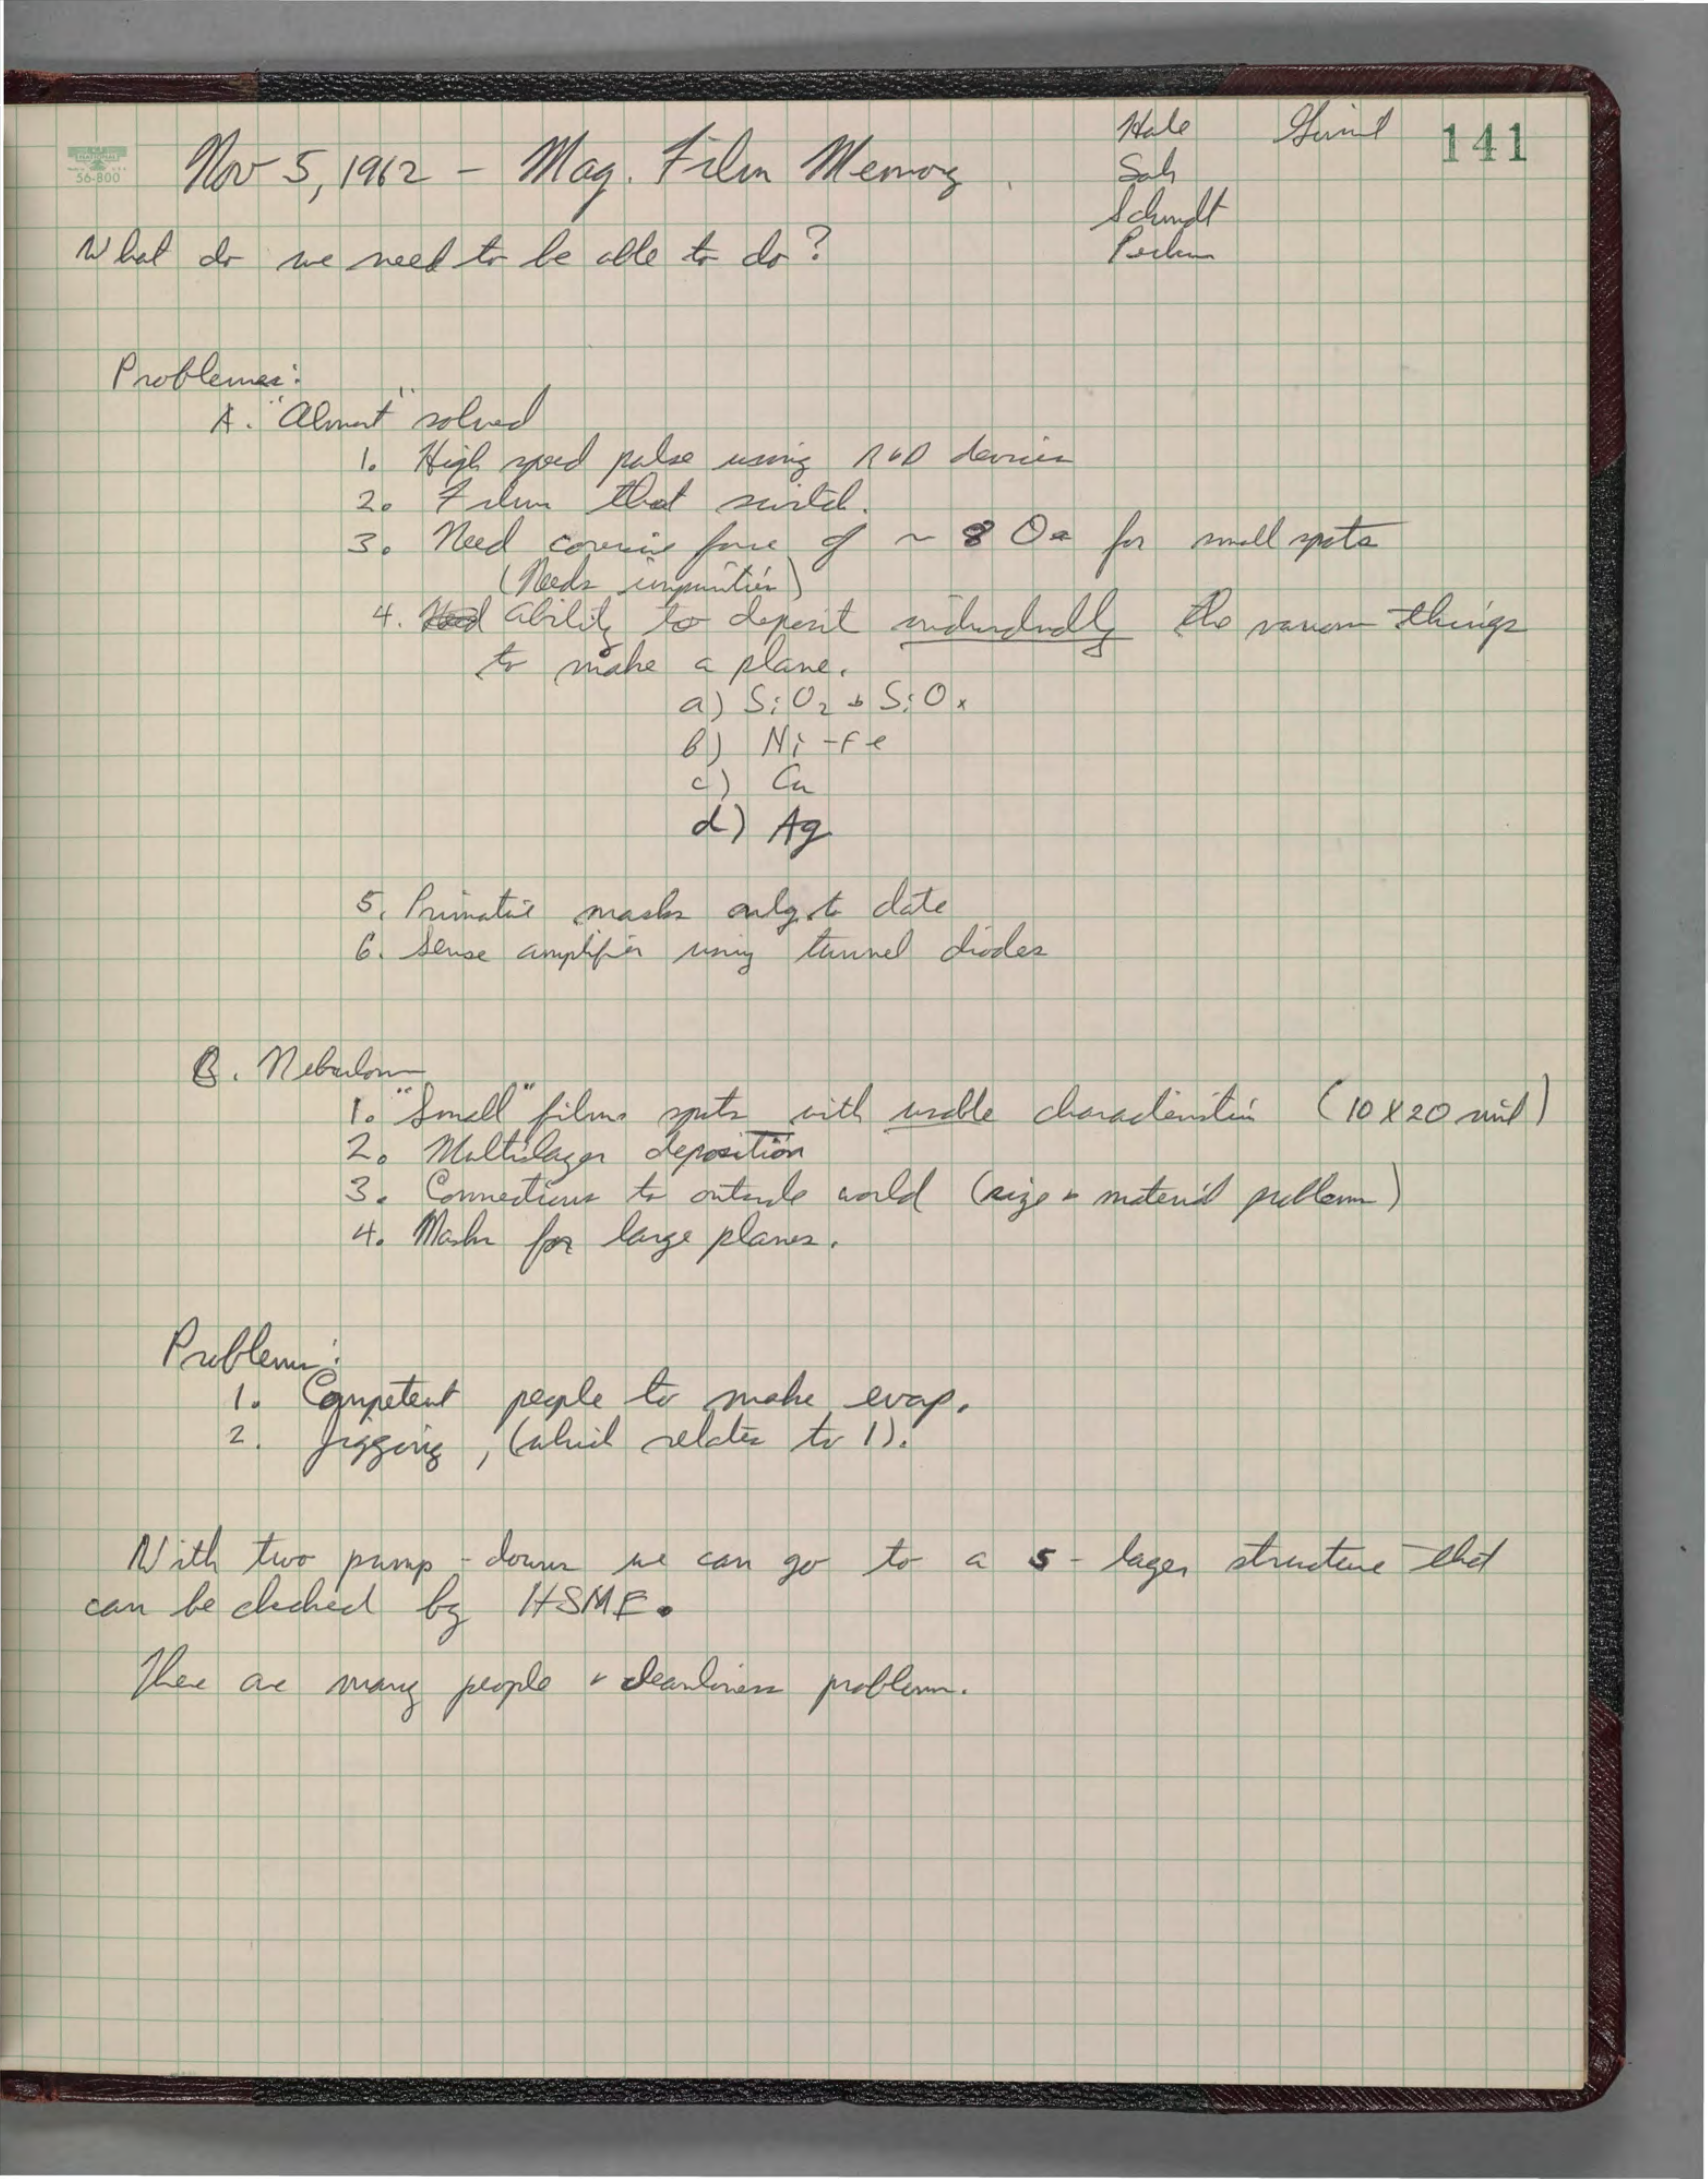 Nov 5, 1962 - Mag. Film Memory
Hale
141
Sah
Schmidt
56-800
What do we need to be able to do?
Problems:
A. "Almost" solved
1. High speed pulse using R&D devices
2. Films that switch.
3. Need coercive force of ~ 8 Oe for small spots
(Needs impurities)
4. Ability to deposit individually the various things
to make a plane.
a) SiO2 + SiOx
b) Ni-Fe
c) Cu
d) Ag
5. Primative masks only to date
6. Sense amplifier using tunnel diodes
B. Nebulous
1. "Small" films spots with usable characteristics (10 X 20 mil)
2. Multilayer deposition
3. Connections to outside world (size + material problems)
4. Masks for large planes.
Problems:
1. Competent people to make evap.
2. Jigging, (which relates to 1).
With two pump-downs we can go to a 5-layer structure that
can be checked by HSME.
There are many people + cleanliness problems.